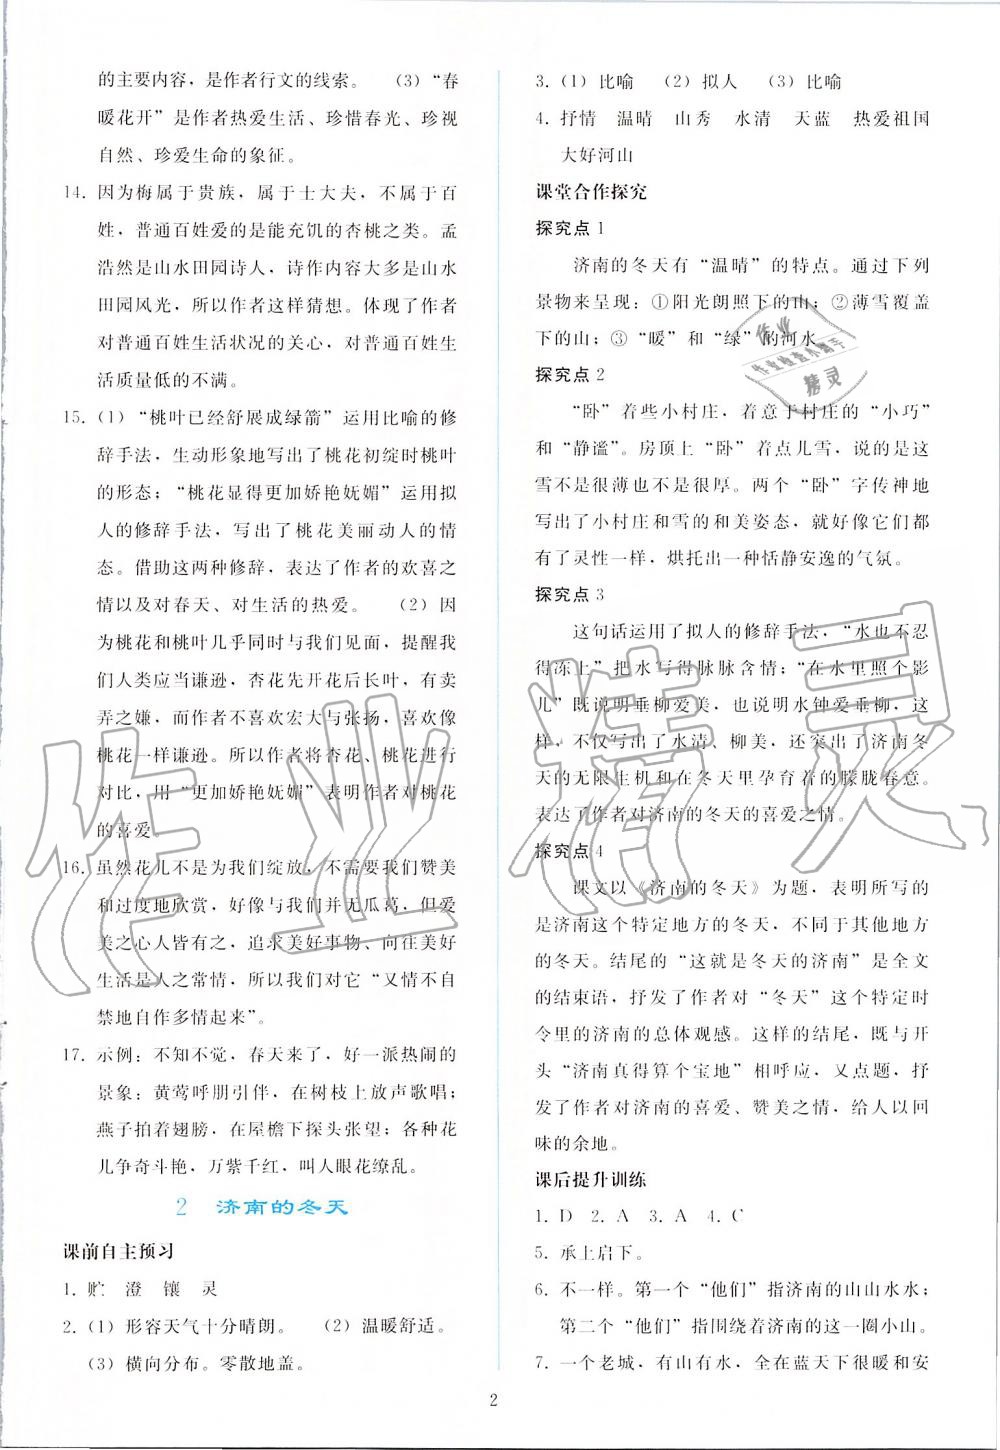 的主要内容，是作者行文的线索。　(3)“春
暖花开”是作者热爱生活、珍惜春光、珍视
自然、珍爱生命的象征。
14. 因为梅属于贵族，属于士大夫，不属于百
姓，普通百姓爱的是能充饥的杏桃之类。孟
浩然是山水田园诗人，诗作内容大多是山水
田园风光，所以作者这样猜想。体现了作者
对普通百姓生活状况的关心，对普通百姓生
活质量低的不满。
15. (1)“桃叶已经舒展成绿箭”运用比喻的修
辞手法，生动形象地写出了桃花初绽时桃叶
的形态；“桃花显得更加娇艳妩媚”运用拟
人的修辞手法，写出了桃花美丽动人的情
态。借助这两种修辞，表达了作者的欢喜之
情以及对春天、对生活的热爱。　(2) 因
为桃花和桃叶几乎同时与我们见面，提醒我
们人类应当谦逊，杏花先开花后长叶，有卖
弄之嫌，而作者不喜欢宏大与张扬，喜欢像
桃花一样谦逊。所以作者将杏花、桃花进行
对比，用“更加娇艳妩媚”表明作者对桃花
的喜爱。
16. 虽然花儿不是为我们绽放，不需要我们赞美
和过度地欣赏，好像与我们并无瓜葛，但爱
美之心人皆有之，追求美好事物、向往美好
生活是人之常情，所以我们对它“又情不自
禁地自作多情起来”。
17. 示例：不知不觉，春天来了，好一派热闹的
景象：黄莺呼朋引伴，在树枝上放声歌唱；
燕子拍着翅膀，在屋檐下探头张望；各种花
儿争奇斗艳，万紫千红，叫人眼花缭乱。
2　济南的冬天
课前自主预习
1. 贮　澄　镶　灵
2. (1) 形容天气十分晴朗。　(2) 温暖舒适。
(3) 横向分布。零散地盖。
3. (1) 比喻　(2) 拟人　(3) 比喻
4. 抒情　温晴　山秀　水清　天蓝　热爱祖国
大好河山
课堂合作探究
探究点 1
济南的冬天有“温晴”的特点。通过下列
景物来呈现：①阳光朗照下的山；②薄雪覆盖
下的山；③“暖”和“绿”的河水。
探究点 2
“卧”着些小村庄，着意于村庄的“小巧”
和“静谧”。房顶上“卧”着点儿雪，说的是这
雪不是很薄也不是很厚。两个“卧”字传神地
写出了小村庄和雪的和美姿态，就好像它们都
有了灵性一样，烘托出一种恬静安逸的气氛。
探究点 3
这句话运用了拟人的修辞手法，“水也不忍
得冻上”把水写得脉脉含情；“在水里照个影
儿”既说明垂柳爱美，也说明水钟爱垂柳，这
样，不仅写出了水清、柳美，还突出了济南冬
天的无限生机和在冬天里孕育着的朦胧春意。
表达了作者对济南的冬天的喜爱之情。
探究点 4
课文以《济南的冬天》为题，表明所写的
是济南这个特定地方的冬天，不同于其他地方
的冬天。结尾的“这就是冬天的济南”是全文
的结束语，抒发了作者对“冬天”这个特定时
令里的济南的总体观感。这样的结尾，既与开
头“济南真得算个宝地”相呼应，又点题，抒
发了作者对济南的喜爱、赞美之情，给人以回
味的余地。
课后提升训练
1. D　2. A　3. A　4. C
5. 承上启下。
6. 不一样。第一个“他们”指济南的山山水水；
第二个“他们”指围绕着济南的这一圈小山。
7. 一个老城，有山有水，全在蓝天下很暖和安
2
作业精灵
作业
作业检查小助手
精灵